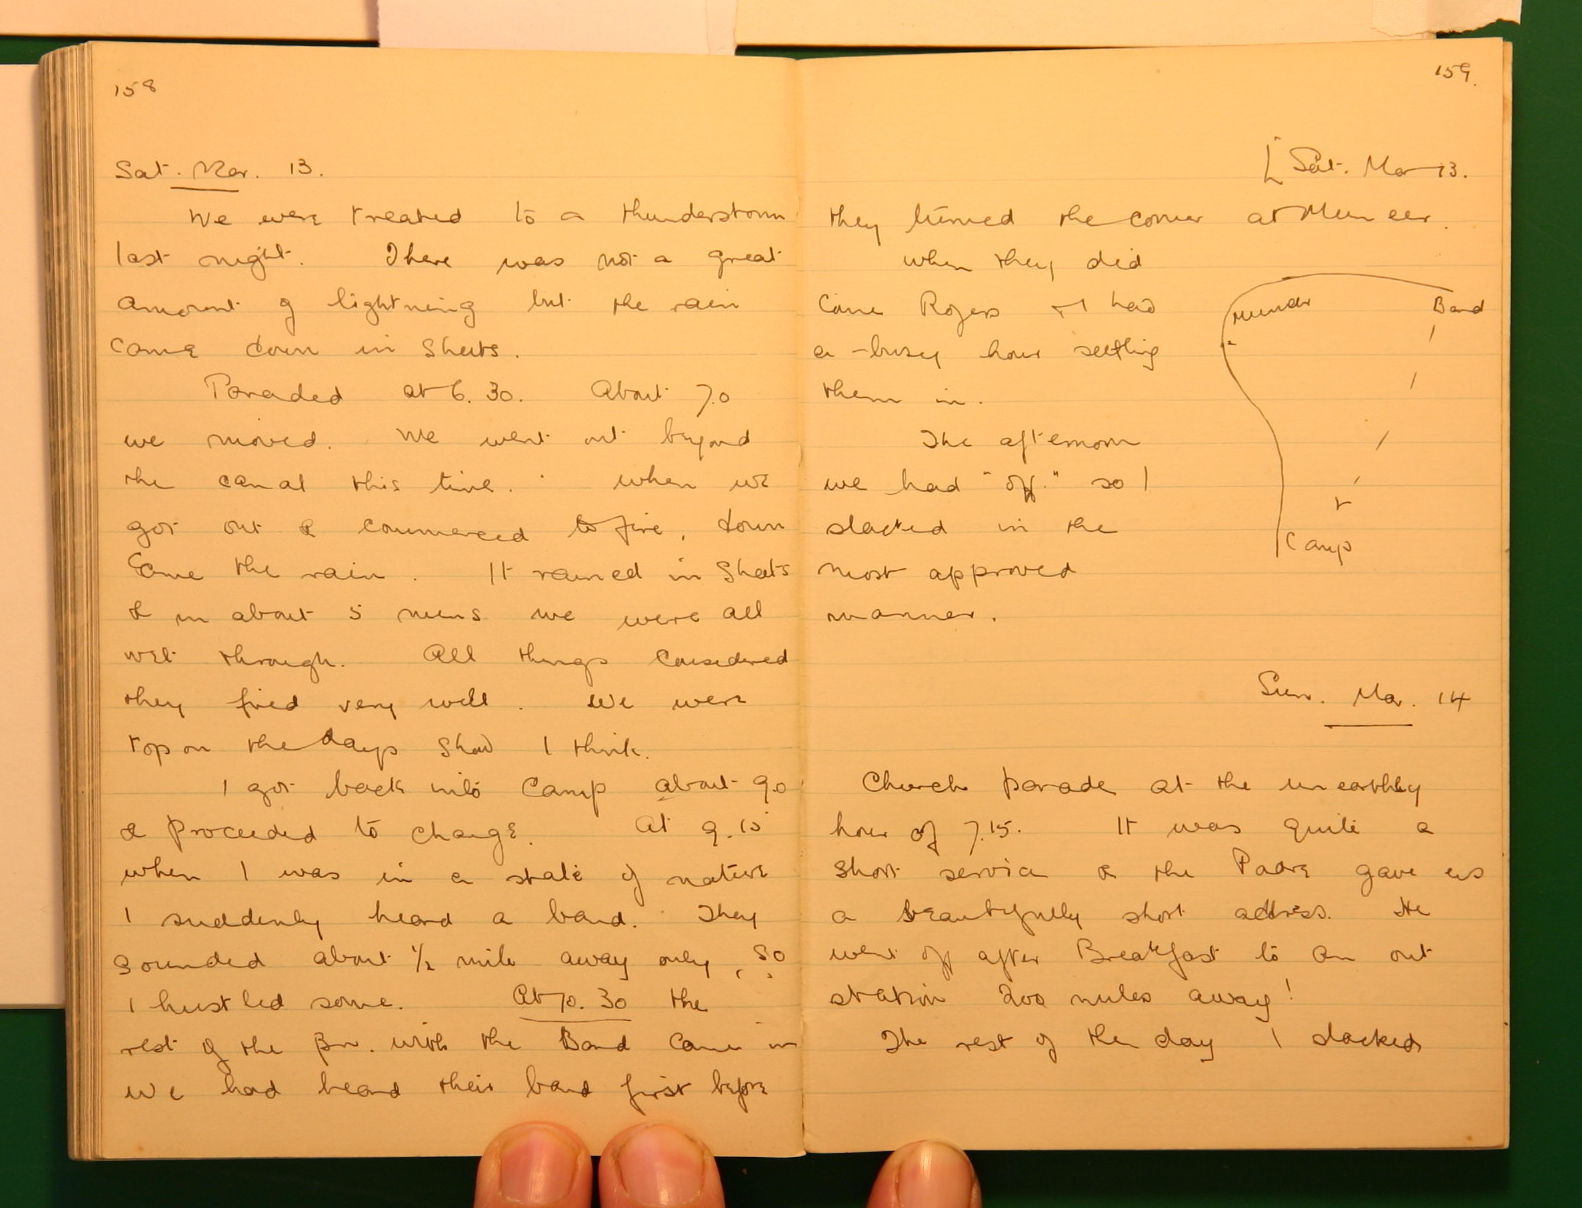 158
Sat. Mar. 13.
We were treated to a thunderstorm
last night. There was not a great
amount of lightning but the rain
came down in sheets.
Paraded at 6.30. About 7.0
we moved. We went out beyond
the canal this time. When we
got out & commenced to fire, down
came the rain. It rained in sheets
& in about 5 mins we were all
wet through. All things considered
they fired very well. We were
top on the days show I think.
I got back into camp about 9.0
& proceeded to change. At 9.15
when I was in a state of nature
I suddenly heard a band. They
sounded about ½ mile away only, so
I hustled some. At 10.30 the
rest of the Bn. with the Band came in
We had heard their band first before
159.
[Sat. Mar 13.
they turned the corner at Muneer.
When they did
come Rogers & I had
a busy hour settling
them in.
The afternoon
we had "off." so I
slacked in the
most approved
manner.
Muneer
Band
Camp
Sun. Mar. 14
Church parade at the unearthly
hour of 7.15. It was quite a
short service & the Padre gave us
a beautifully short address. He
went off after Breakfast to an out
station 200 miles away!
The rest of the day I slacked